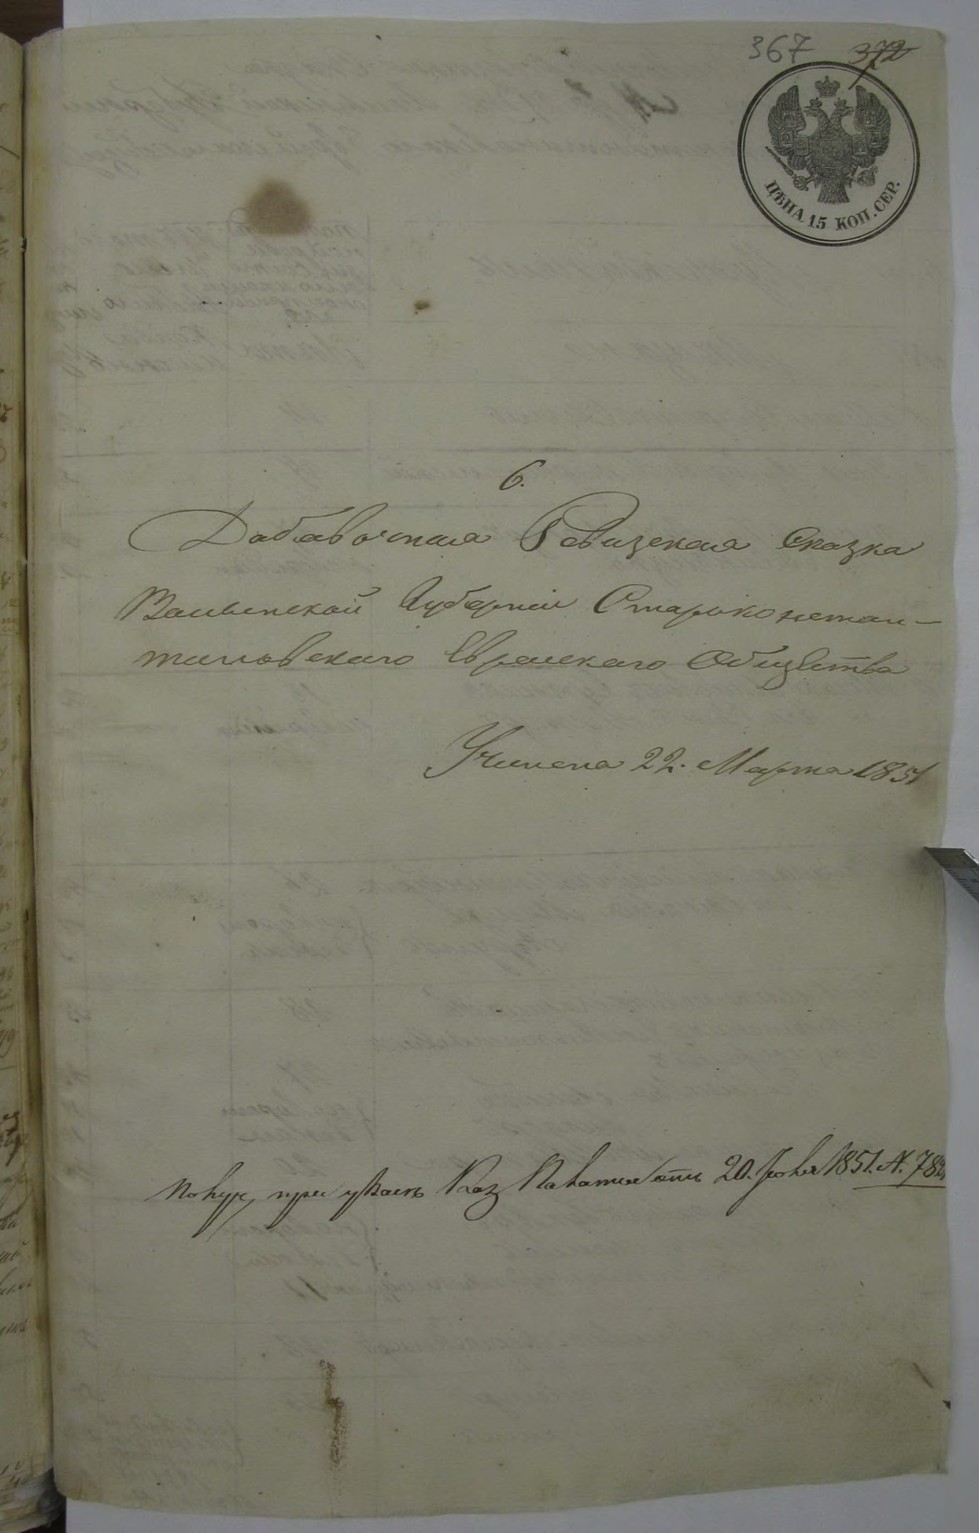 367 372
ЦѢНА 15 КОП. СЕР.
6.
Добавочная Ревизская Сказка
Волынской Губернии Староконстан-
тиновскаго Еврейскаго Общества
Учинена 22. Марта 1851
при указѣ Каз. Палаты отъ 20. Іюня 1851. N. 782